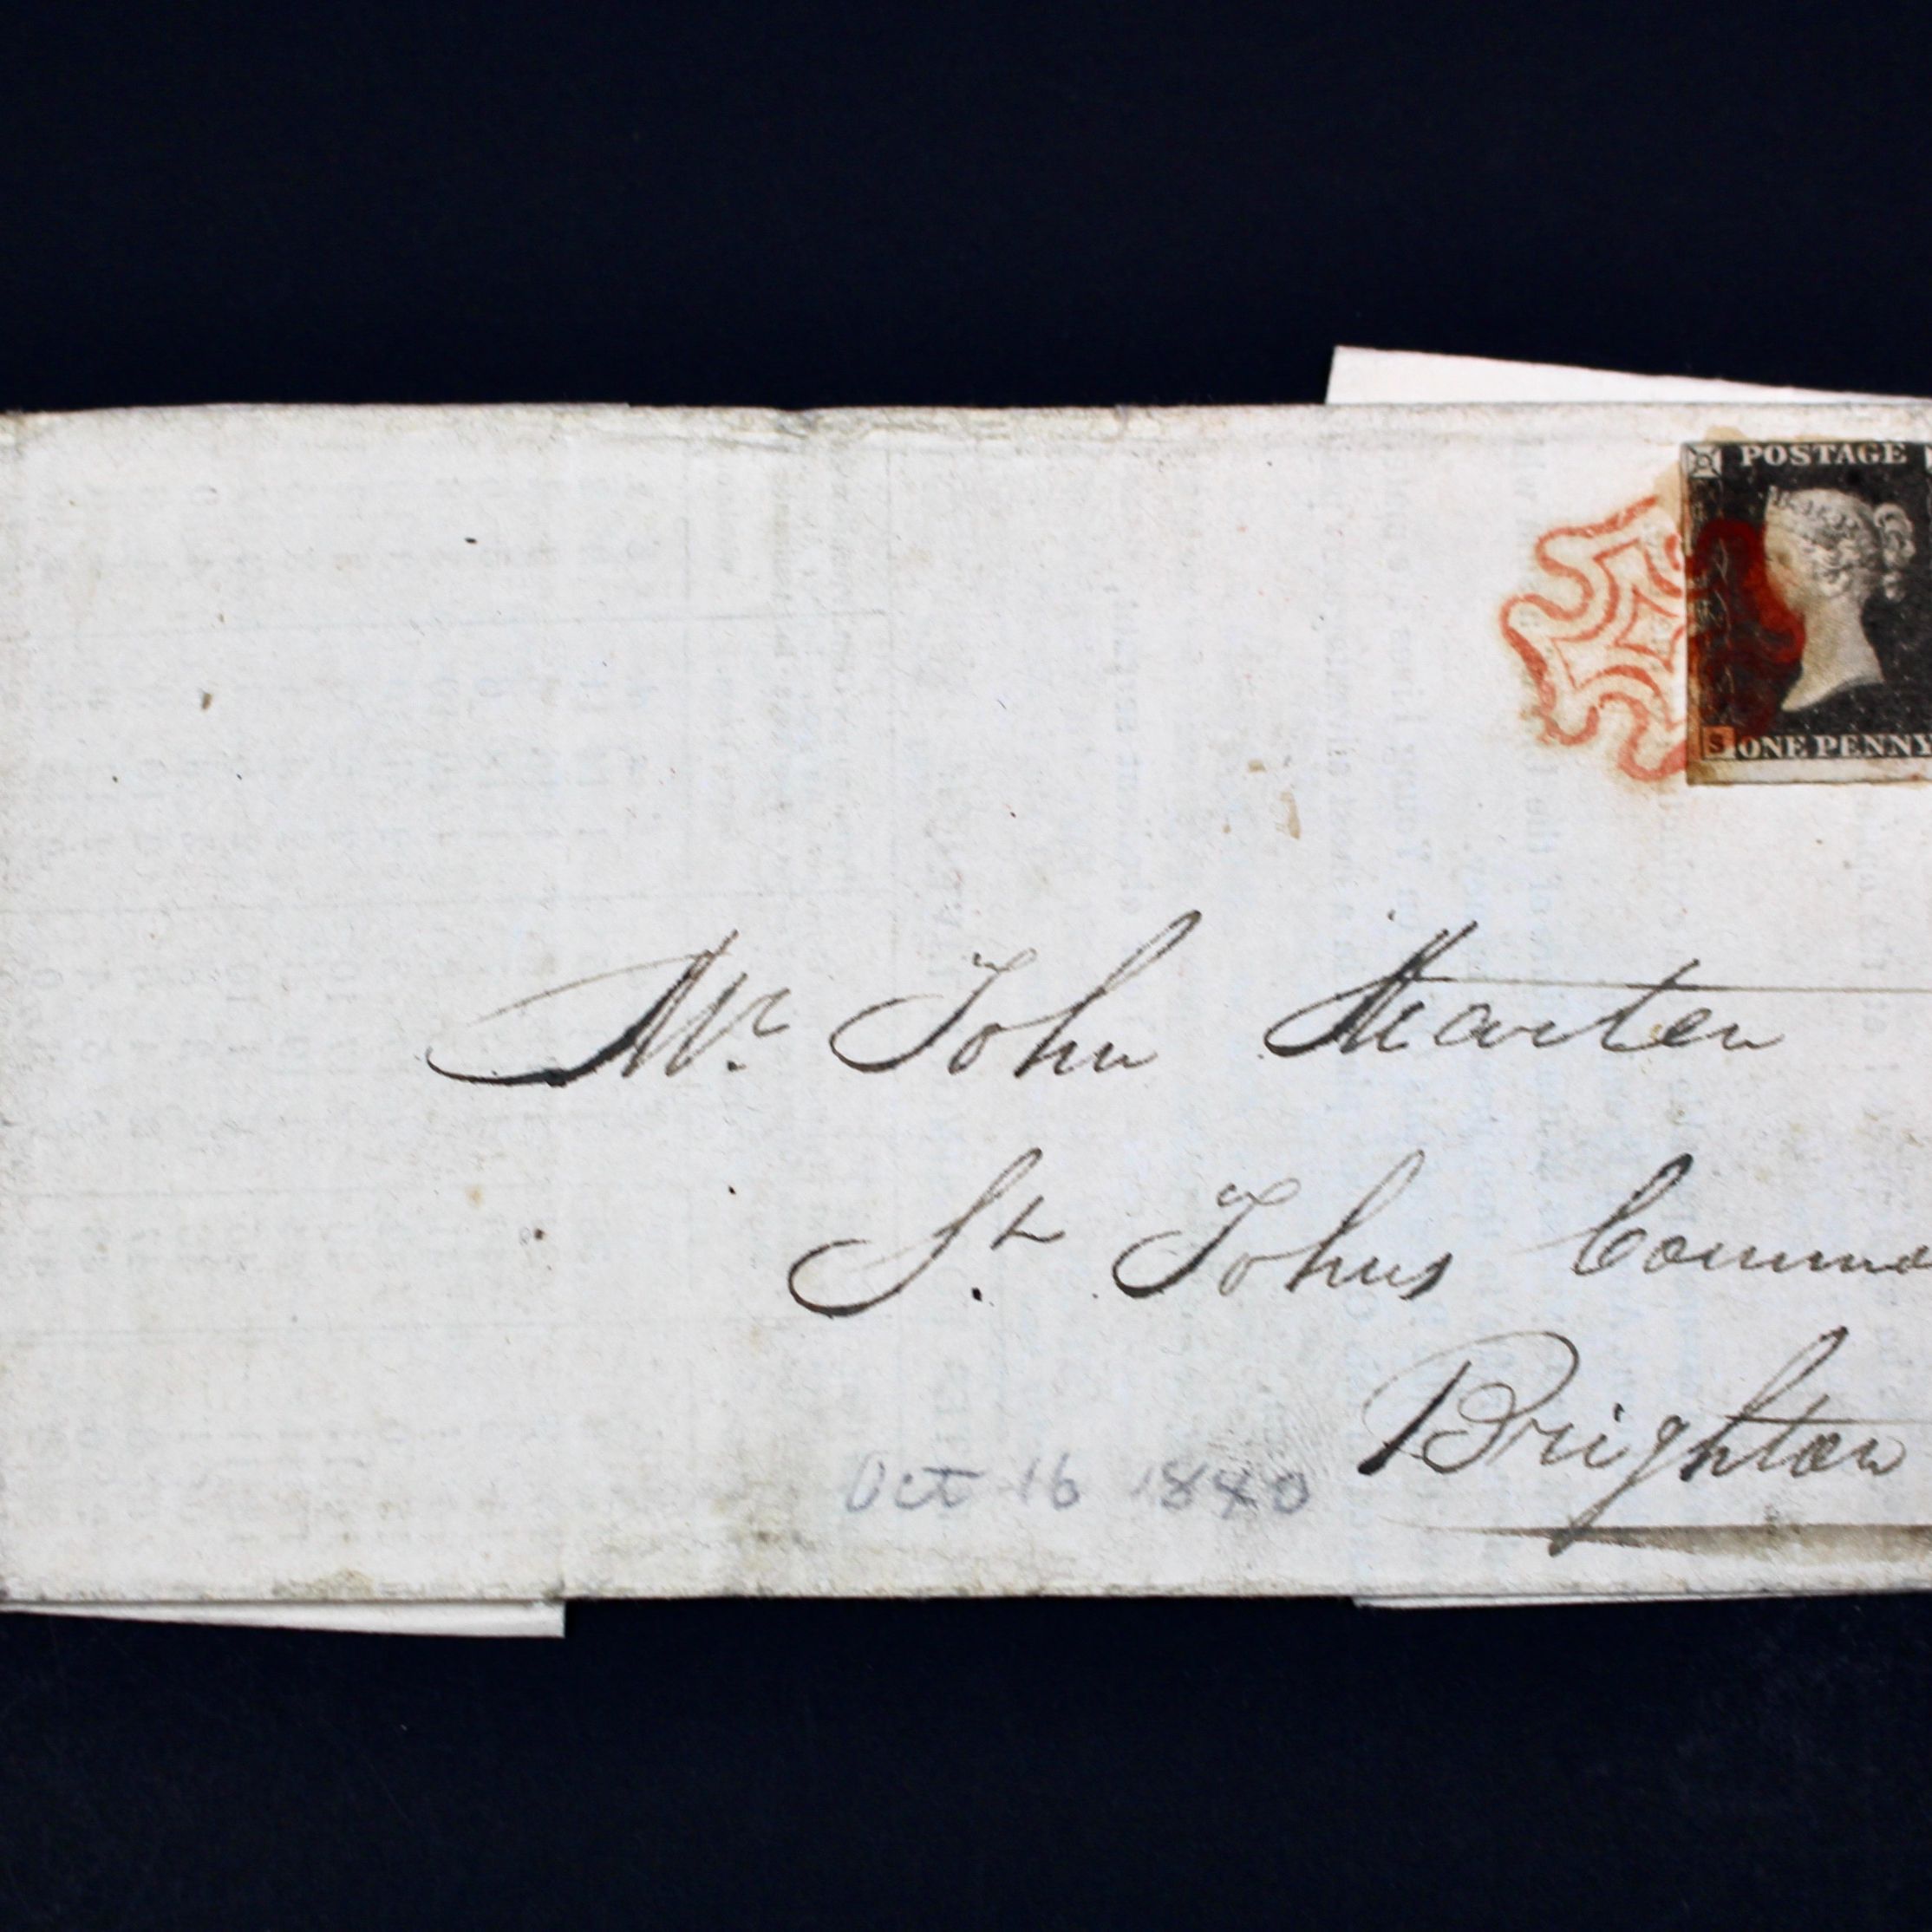 POSTAGE
S ONE PENNY
Mr. John Marten
St. Johns Commo
Brighton
Oct 16 1840